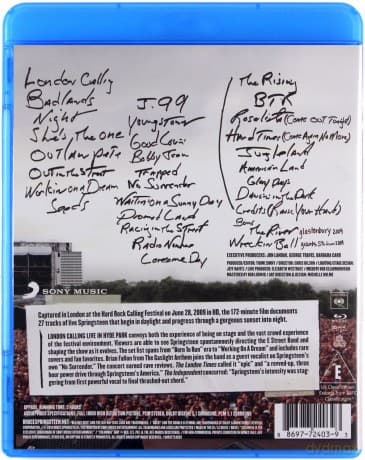 London Calling
Badlands
Night
She's the One
Outlaw Pete
Out in the Street
Workin on a Dream
Seeds
J. 99
Youngstown
Good Lovin
Bobby Jean
Trapped
No Surrender
Waitin on a Sunny Day
Promised Land
Racing in the Street
Radio Nowhere
Lonesome Day
The Rising
BTR
Rosalita (Come Out Tonight)
Hard Times (Come Again No More)
Jungleland
American Land
Glory Days
Dancin in the Dark
Credits (Raise Your Hand)
The River glastonbury 2009
Wreckin Ball giants stadium 2009
SONY MUSIC
Captured in London at the Hard Rock Calling Festival on June 28, 2009 in HD, the 172-minute film documents
27 tracks of live Springsteen that begin in daylight and progress through a gorgeous sunset into night.
LONDON CALLING: LIVE IN HYDE PARK conveys both the experience of being on stage and the vast crowd experience
of the festival environment. Viewers are able to see Springsteen spontaneously directing the E Street Band and
shaping the show as it evolves. The set list spans from "Born to Run" era to "Working On A Dream" and includes rare
covers and fan favorites. Brian Fallon from The Gaslight Anthem joins the band as a guest vocalist on Springsteen's
own "No Surrender." The concert earned rave reviews. The London Times called it "epic" and "a revved-up, three
hour power drive through Springsteen's America." The Independent summarized: "Springsteen's intensity was stag-
gering from first powerful vocal to final thrashed-out chord."
8 8697-72403-9 3